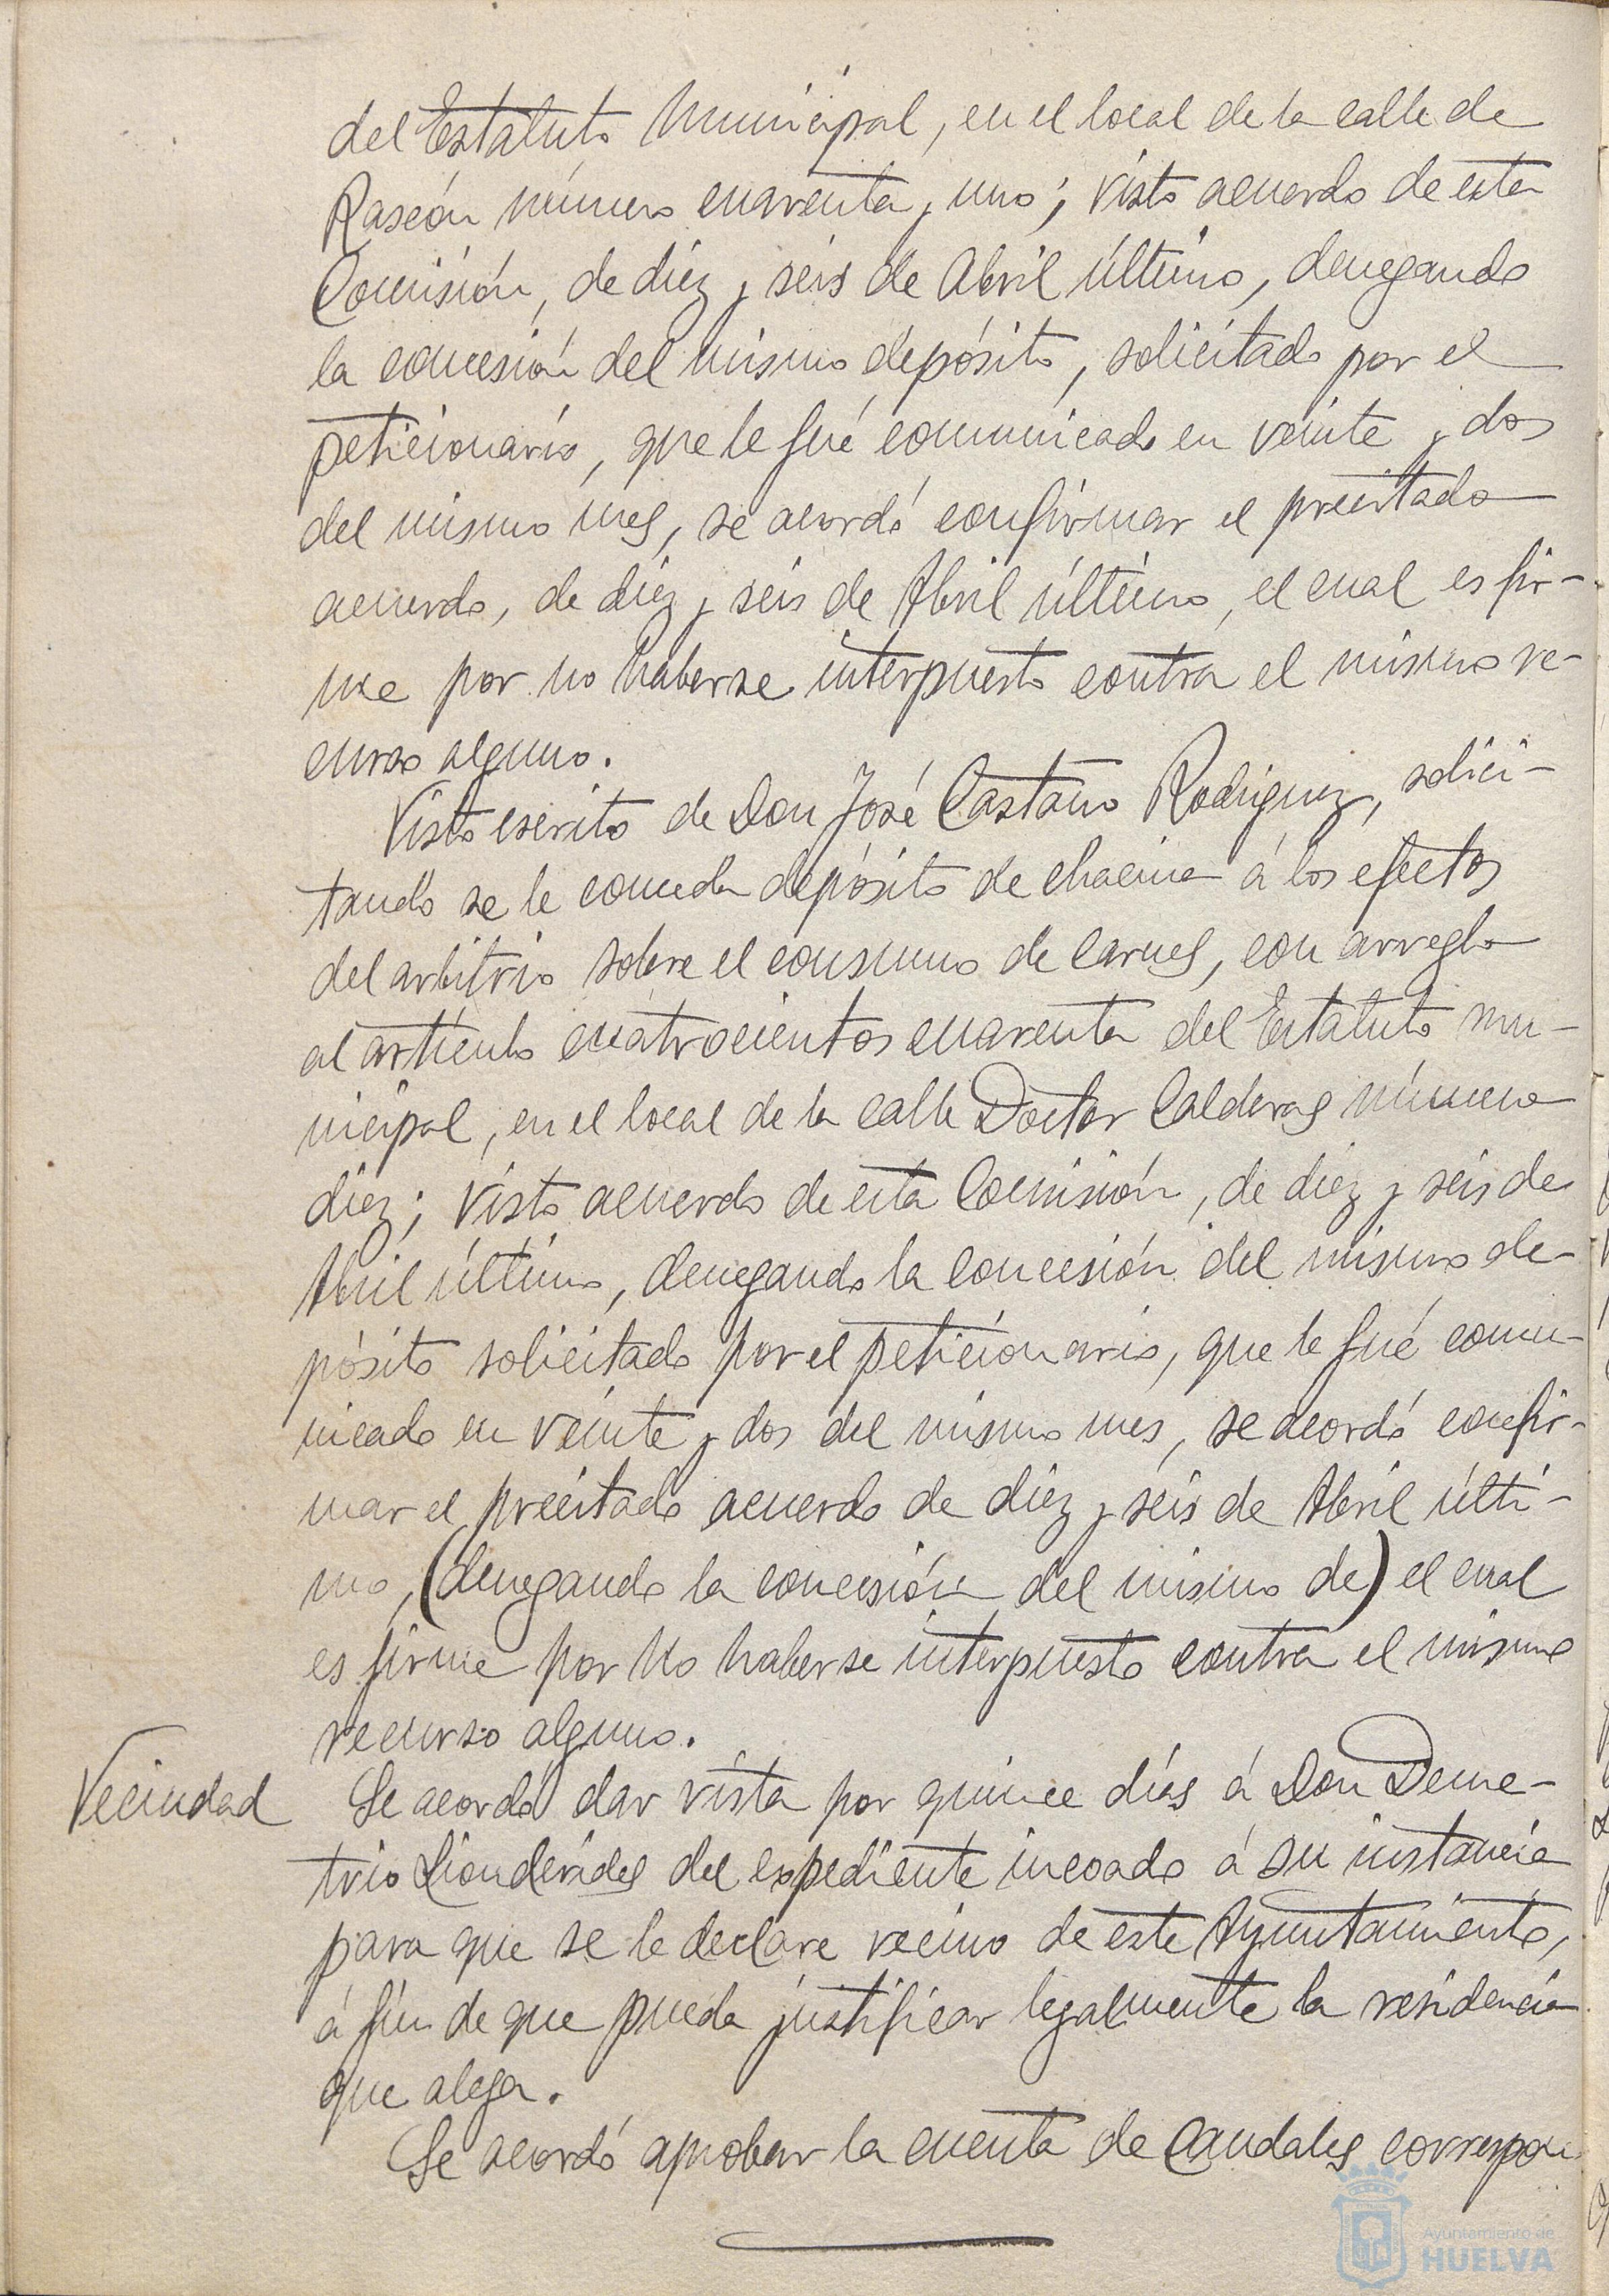 del Estatuto Municipal, en el local de la calle de
Rascón número cuarenta y uno; visto acuerdo de esta
Comisión, de diez y seis de Abril último, denegando
la concesión del mismo depósito, solicitado por el
peticionario, que le fué comunicado en veinte y dos
del mismo mes, se acordó confirmar el precitado
acuerdo, de diez y seis de Abril último, el cual es fir-
me por no haberse interpuesto contra el mismo re-
curso alguno.
Visto escrito de Don José Castaño Rodríguez, solici-
tando se le conceda depósito de chacina á los efectos
del arbitrio sobre el consumo de Carnes, con arreglo
al artículo cuatrocientos cuarenta del Estatuto mu-
nicipal, en el local de la calle Doctor Calderas número
diez; visto acuerdo de esta Comisión, de diez y seis de
Abril último, denegando la concesión del mismo de-
pósito solicitado por el peticionario, que le fué comu-
nicado en veinte y dos del mismo mes, se acordó confir-
mar el precitado acuerdo de diez y seis de Abril últi-
mo, (denegando la concesión del mismo de) el cual
es firme por no haberse interpuesto contra el mismo
recurso alguno.
Vecindad Se acordó dar vista por quince días á Don Deme-
trio del expediente incoado á su instancia
para que se le declare vecino de este Ayuntamiento,
á fin de que pueda justificar legalmente la residencia
que alega.
Se acordó aprobar la cuenta de Caudales correspon
Ayuntamiento de
HUELVA